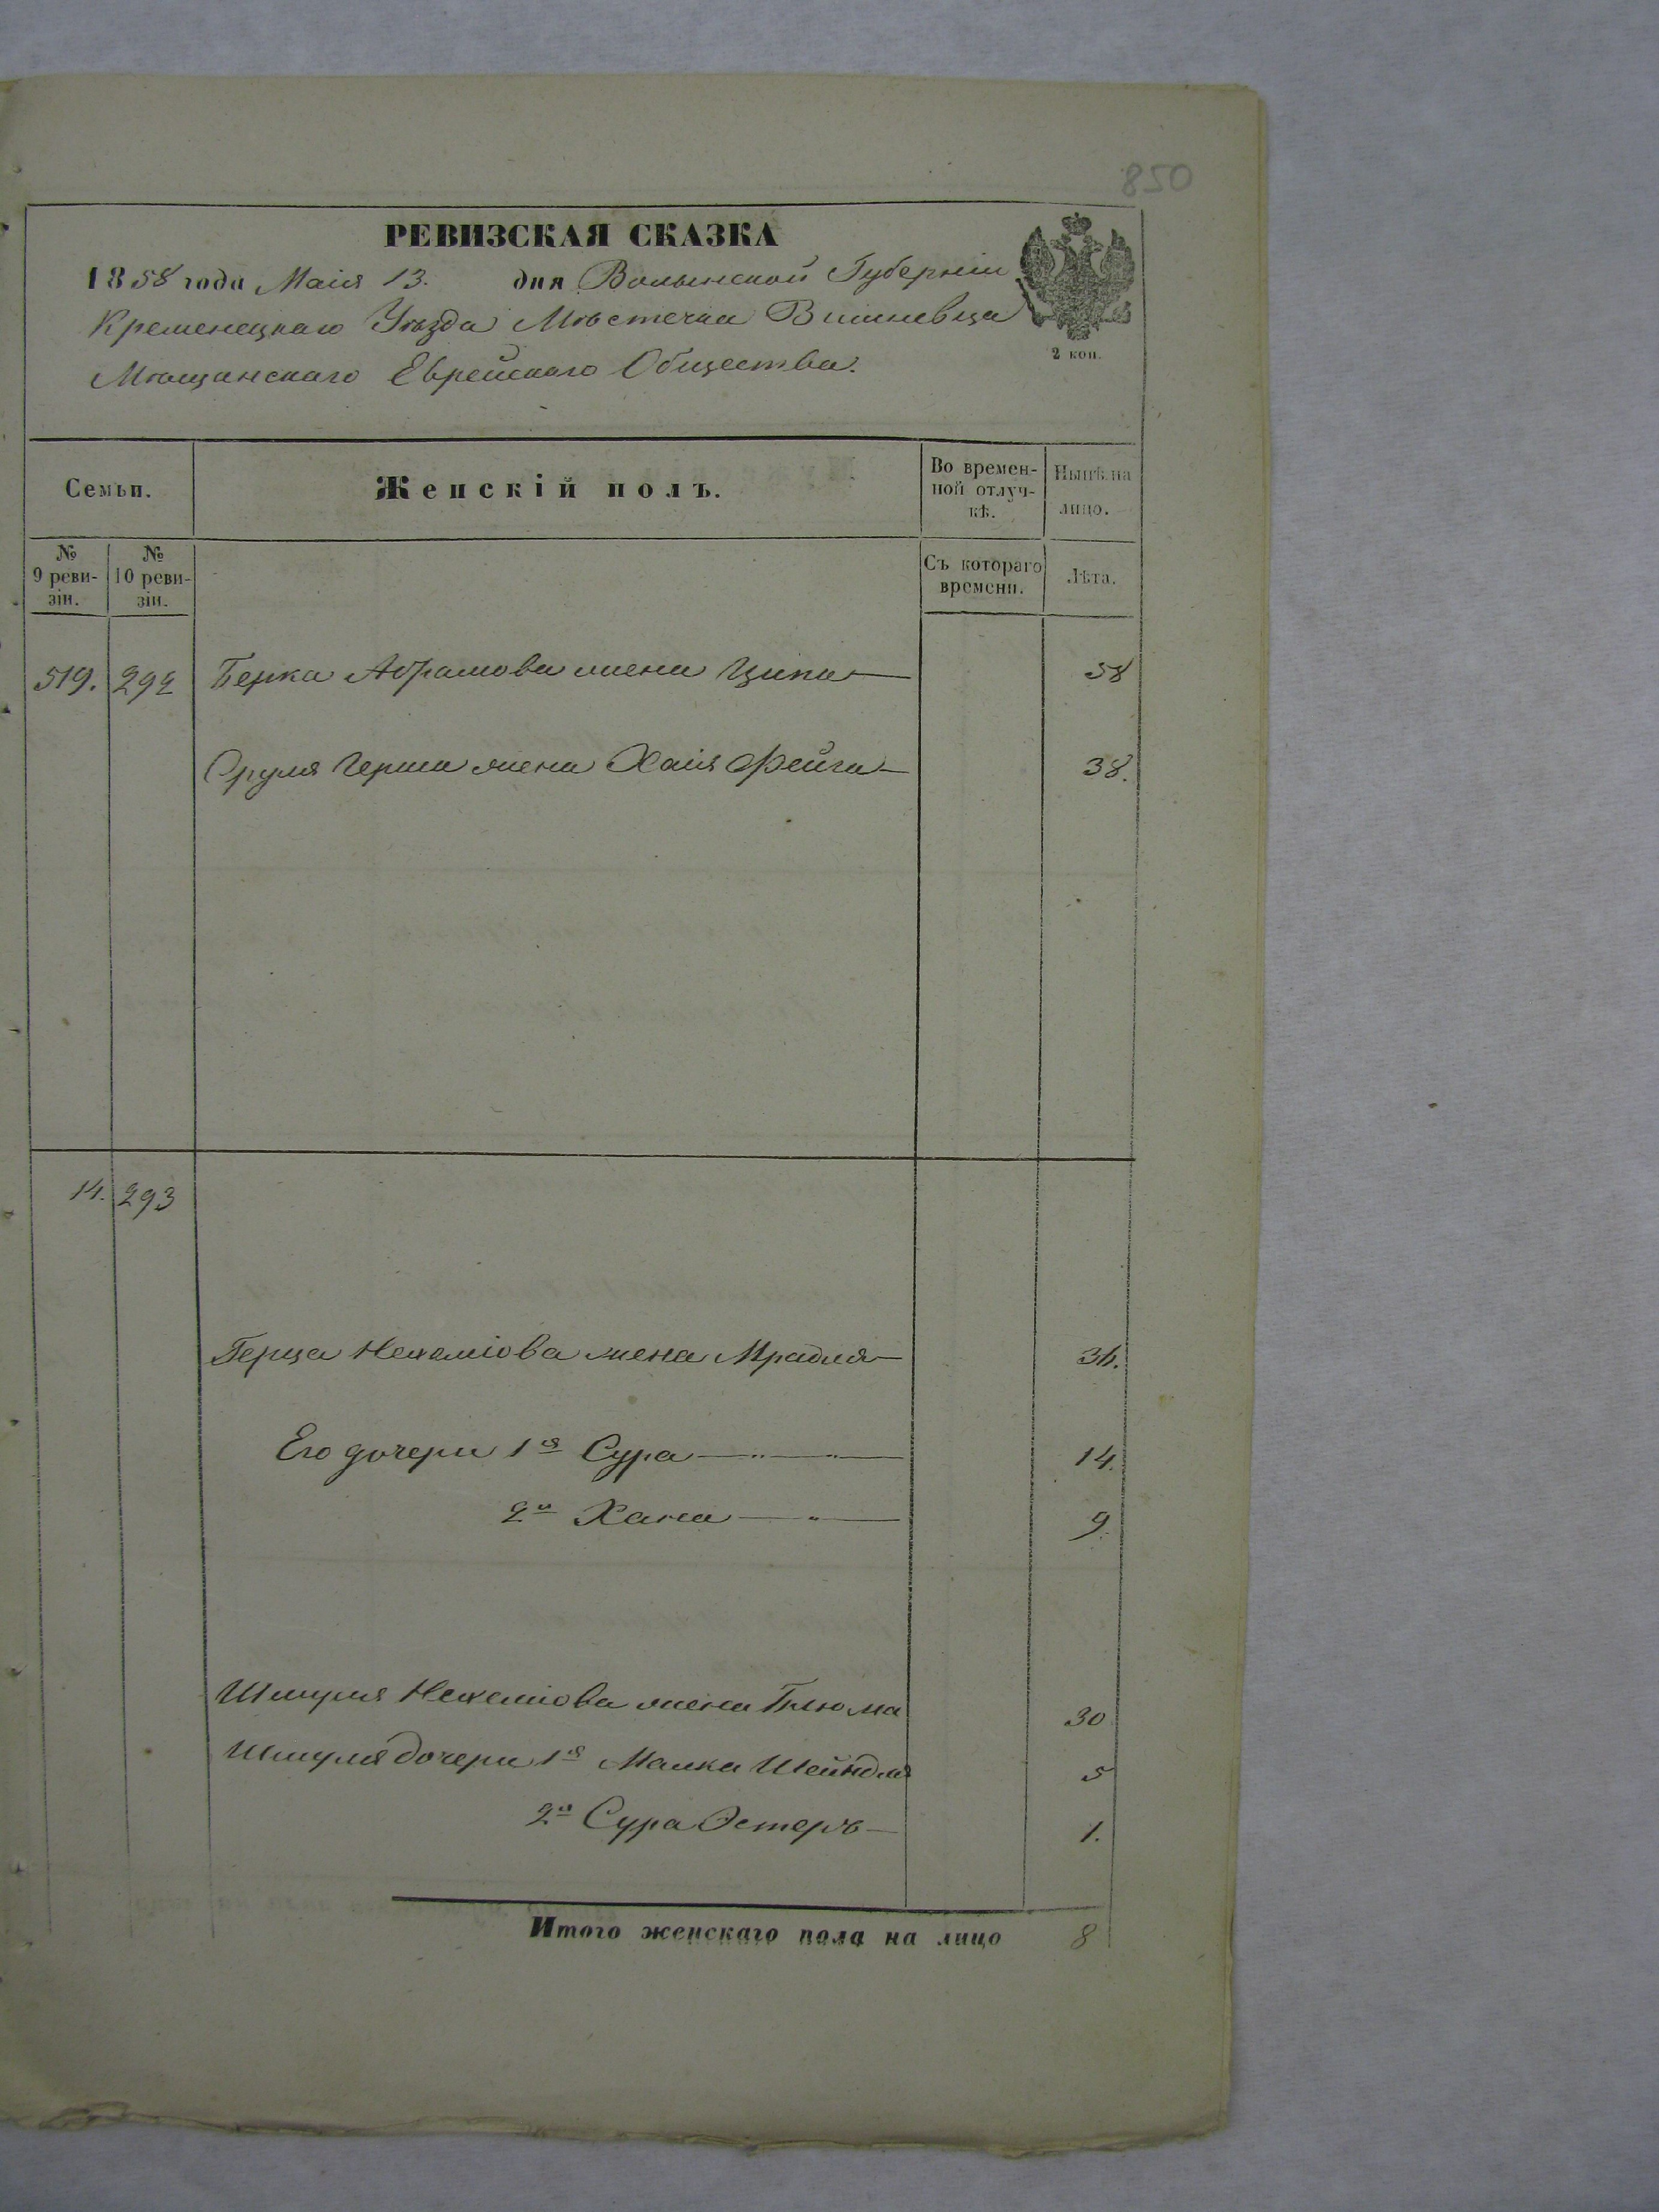 850
РЕВИЗСКАЯ СКАЗКА
1858 года Маія 13. дня Волынской Губерніи
Кременецкаго Уѣзда Мѣстечка Вишневца
Мѣщанскаго Еврейскаго Общества.
2 коп.
Семьи.
Женскій полъ.
Во времен-
ной отлуч-
кѣ.
Нынѣ на
лицо.
№
9 реви-
зіи.
№
10 реви-
зіи.
Съ котораго
времени.
Лѣта.
519. 292 Берка Абрамова жена Ципа 58
Сруля Герша жена Хаія Фейга 38.
14. 293
Герца Нехеміова жена 36.
Его дочери 1я Сура 14.
2я Хана 9.
Шмуля Нехеміова жена Блюма 30
Шмуля дочери 1я Малка Шейндля 5
2я Сура Эстеръ 1.
Итого женскаго пола на лицо 8